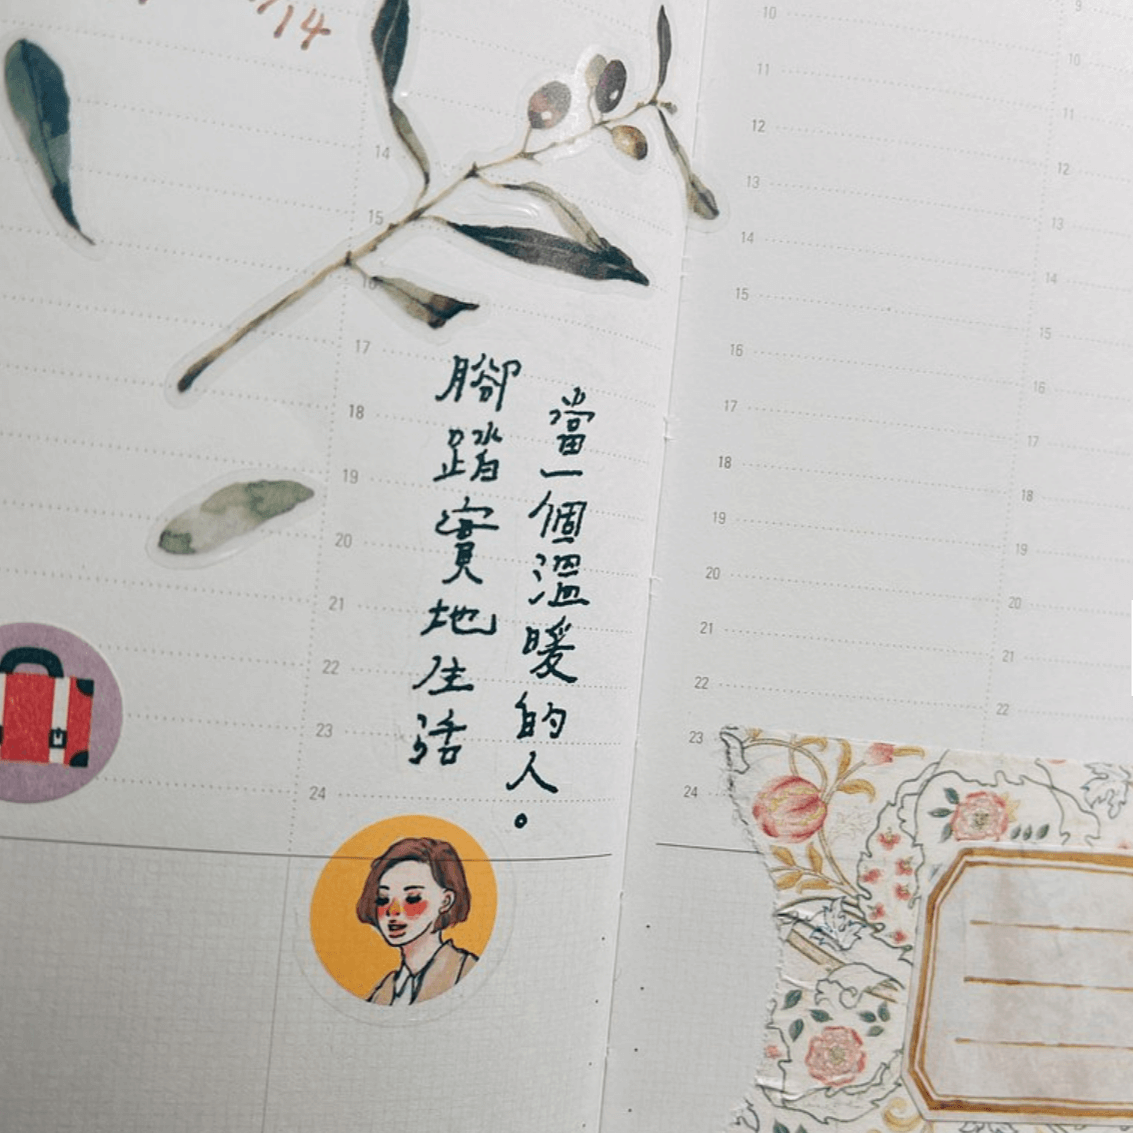 /14
當一個溫暖的人。
腳踏實地生活
14
15
16
17
18
19
20
21
22
23
24
10
11
12
13
14
15
16
17
18
19
20
21
22
23
24
9
10
11
12
13
14
15
16
17
18
19
20
21
22